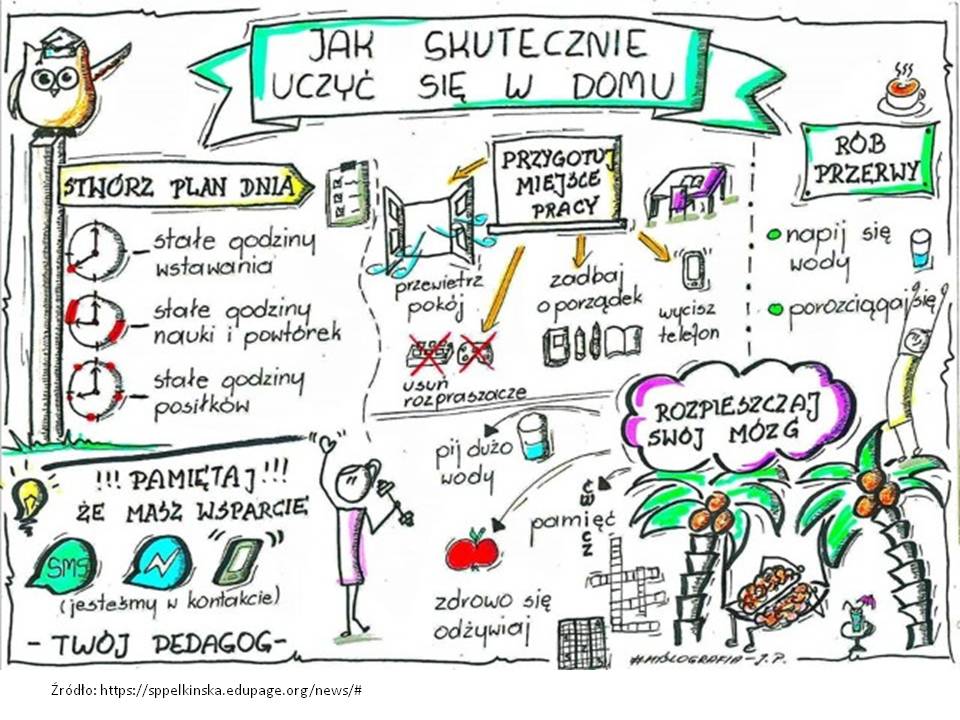 JAK SKUTECZNIE
UCZYĆ SIĘ W DOMU
STWÓRZ PLAN DNIA
stałe godziny
wstawania
stałe godziny
nauki i powtórek
stałe godziny
posiłków
PRZYGOTUJ
MIEJSCE
PRACY
przewietrz
pokój
usuń
rozpraszacze
zadbaj
o porządek
wycisz
telefon
RÓB
PRZERWY
napij się
wody
porozciągaj się
ROZPIESZCZAJ
SWÓJ MÓZG
pij dużo
wody
ćwicz
pamięć
zdrowo się
odżywiaj
!!! PAMIĘTAJ !!!
ŻE MASZ WSPARCIE
SMS
(jesteśmy w kontakcie)
- TWÓJ PEDAGOG -
#MYŚLOGRAFIA - J.P.
Źródło: https://sppelkinska.edupage.org/news/#